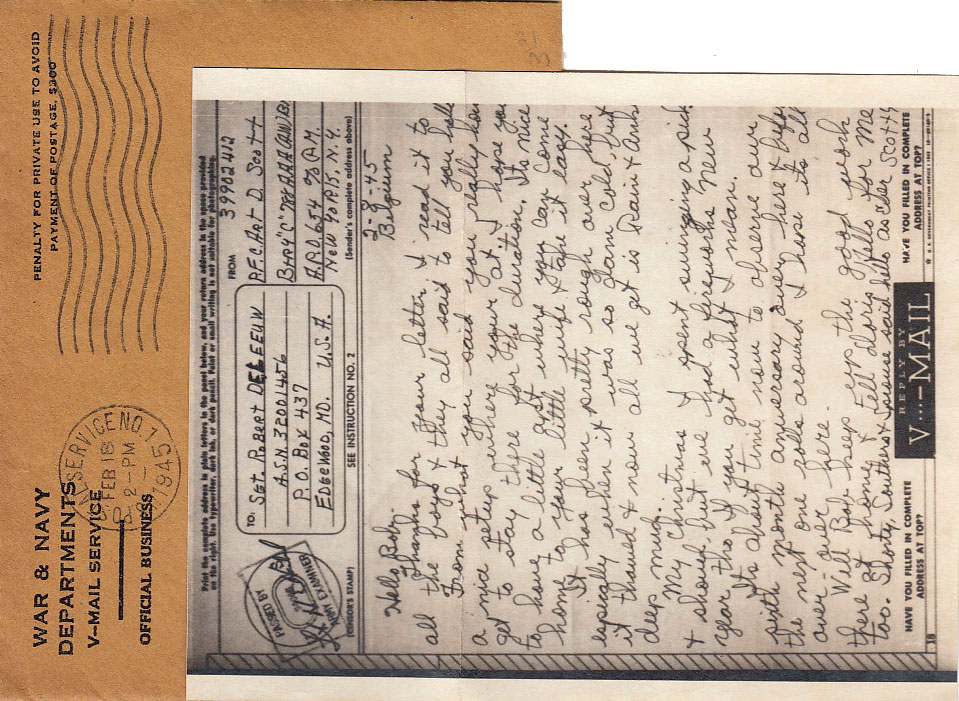 WAR & NAVY
DEPARTMENTS
V-MAIL SERVICE
OFFICIAL BUSINESS
FEB 18
2-PM
1945
PENALTY FOR PRIVATE USE TO AVOID
PAYMENT OF POSTAGE, $300
Print the complete address in plain letters in the panel below, and your return address in the space provided
on the right. Use typewriter, dark ink, or dark pencil. Faint or small writing is not suitable for photographing.
PASSED BY
ARMY EXAMINER
(CENSOR'S STAMP)
TO: SGT. ROBERT DELEEUW
A.S.N 32001456
P.O. BOX 437
EDGEWOOD, MD. U.S.A.
SEE INSTRUCTION NO. 2
FROM
39902412
P.F.C. Art D. Scott
A.P.O. 654 % P.M.
New York, N.Y.
(Sender's complete address above)
2-8-45
Belgium
Hello Bob,
Thanks for your letter, I read it to
all the boys & they all said to tell you hello
From what you said you really have
a nice setup where your at & hope you
get to stay there for the duration. Its nice
to have a little apt where you can come
home to your little wife & take it easy.
It has been pretty rough over here
especially when it was so damn cold, but
it thawed & now all we get is rain &
deep mud.
My Christmas I spent swinging a pick
& shovel, but we had a fireworks New
Year tho if you get what I mean.
Its about time now to observe our
sixth month anniversary over here & before
the next one rolls around I hope its all
over over here.
Will Bob keep up the good work
there at home & tell doris hello for me
too. Shorty, Southers & said hello as ever Scotty
HAVE YOU FILLED IN COMPLETE
ADDRESS AT TOP?
REPLY BY
V...-MAIL
HAVE YOU FILLED IN COMPLETE
ADDRESS AT TOP?